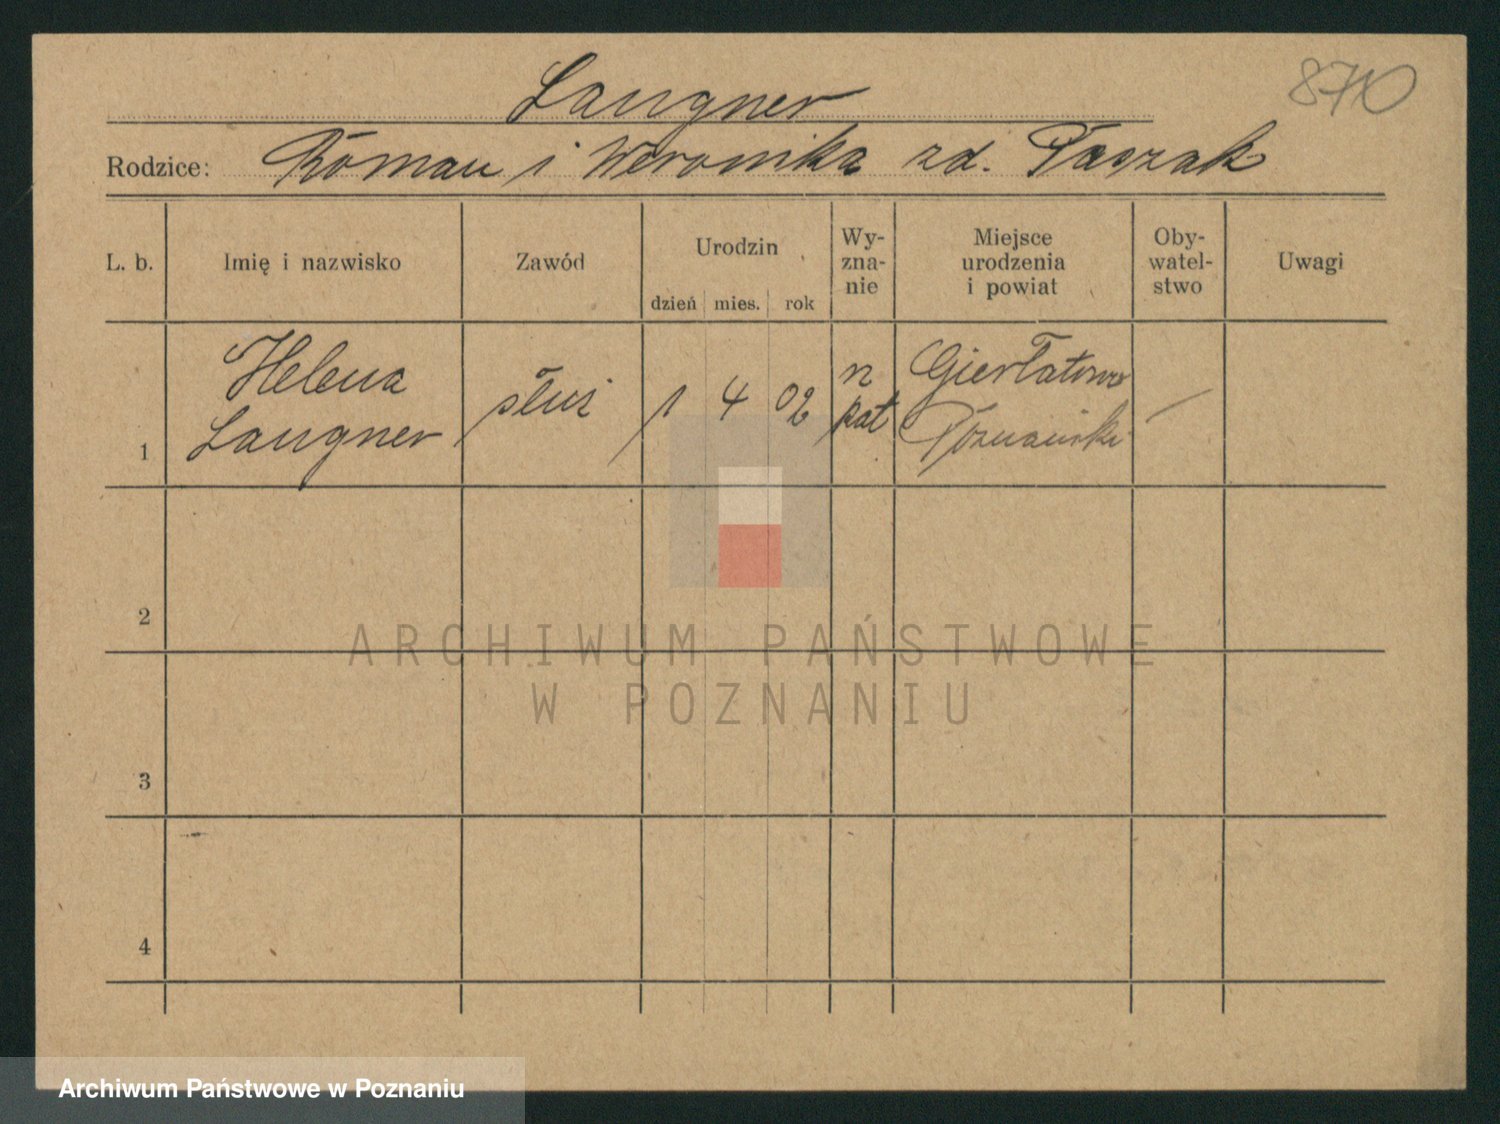 870
Langner
Rodzice: Roman i Weronika zd. Ptaszak
L. b.
Imię i nazwisko
Zawód
Urodzin
dzień mies. rok
Wy-
zna-
nie
Miejsce
urodzenia
i powiat
Oby-
watel-
stwo
Uwagi
1
Helena
Langner
służ
1 4 02
n
kat
Gierłatowo
Poznański
—
2
3
4
ARCHIWUM PAŃSTWOWE
W POZNANIU
Archiwum Państwowe w Poznaniu